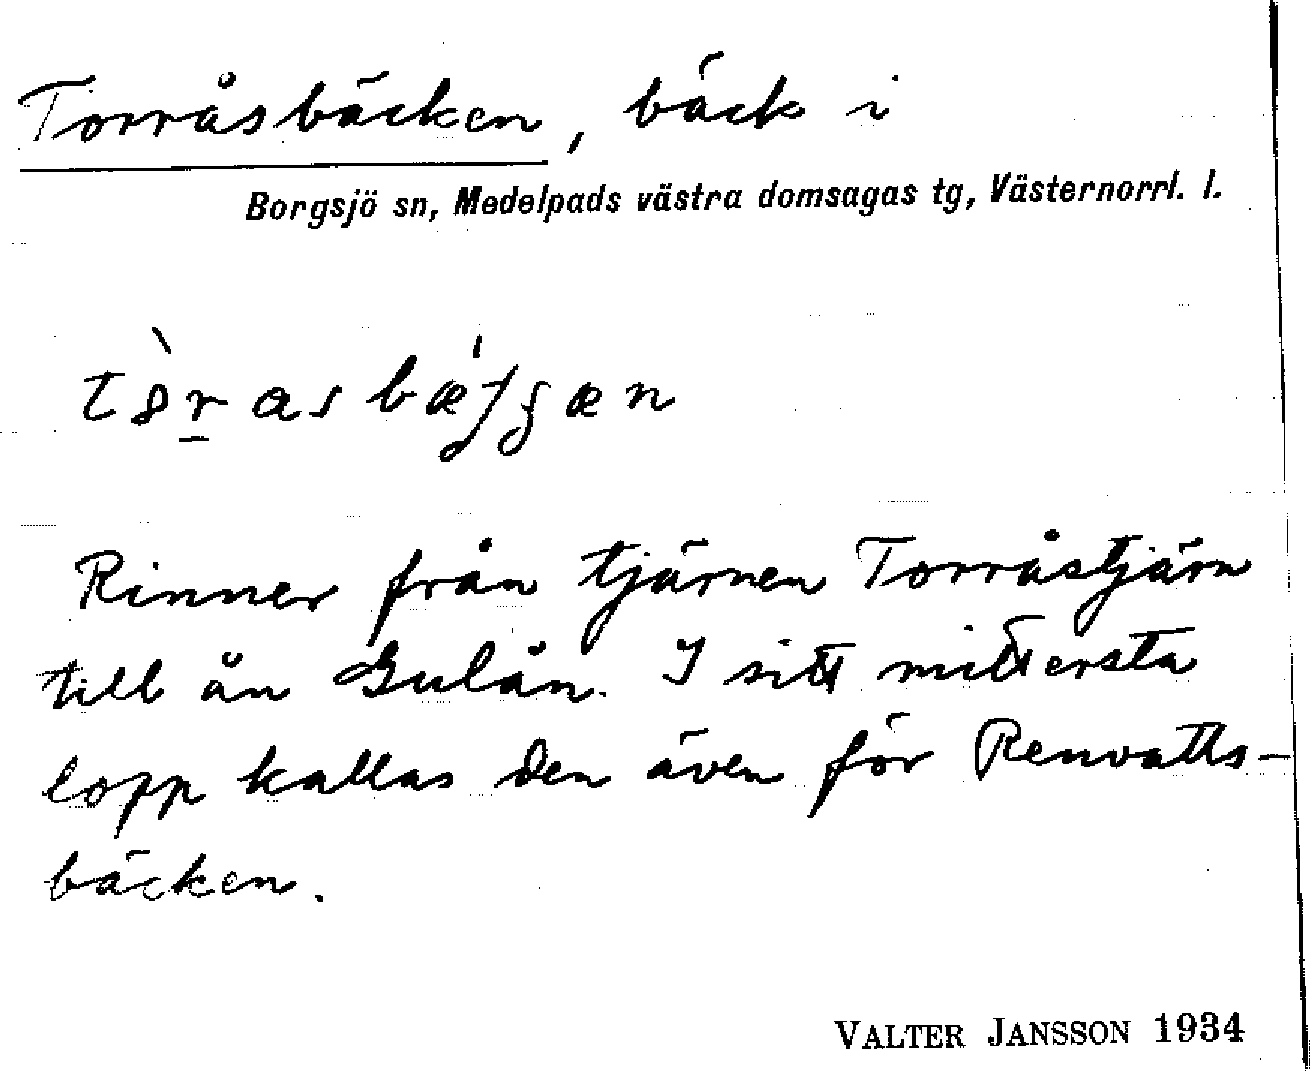 Torråsbäcken, bäck i
Borgsjö sn, Medelpads västra domsagas tg, Västernorrl. l.
Rinner från tjärnen Torråstjärn
till ån Gulån. I sitt mittersta
lopp kallas den även för Renvatts-
bäcken.
VALTER JANSSON 1934